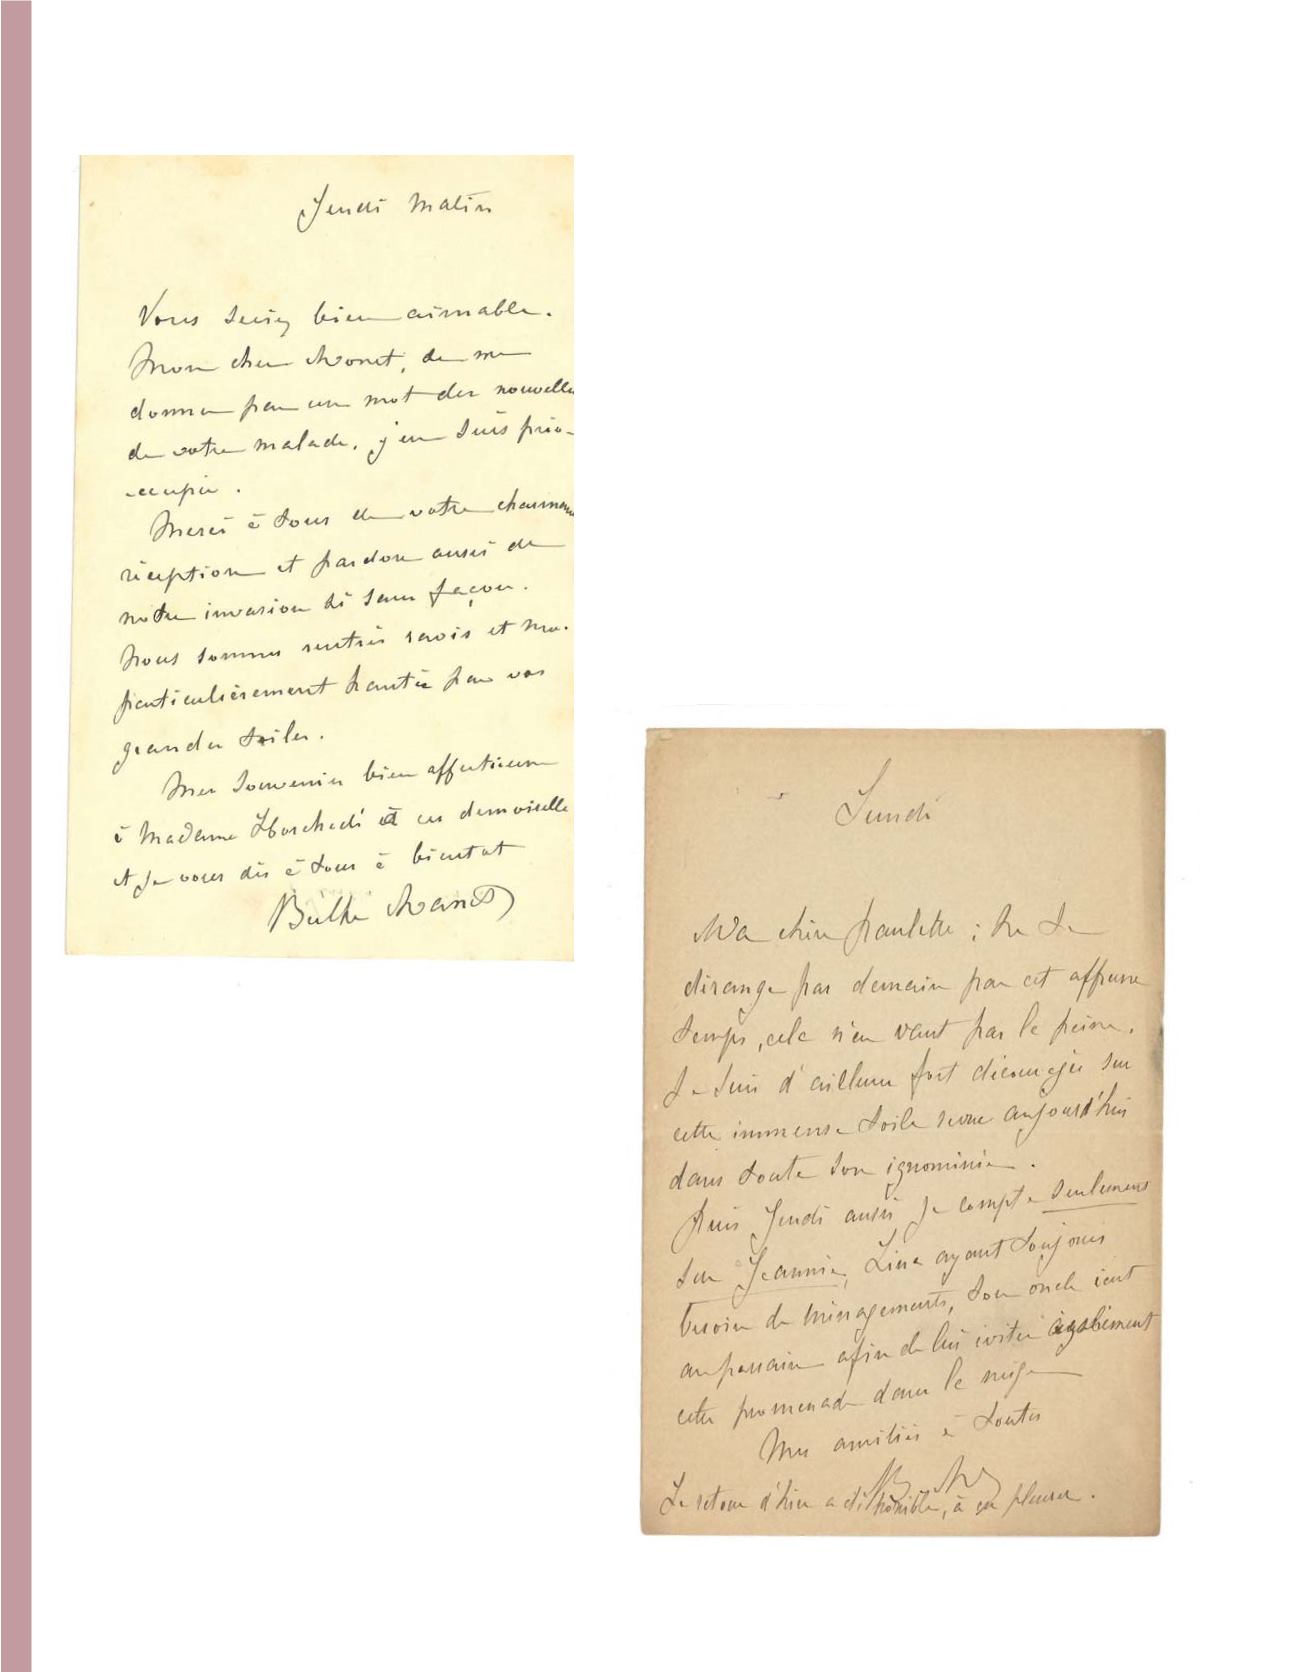 Jeudi matin
Vous seriez bien aimable.
Mon cher Monet, de me
donner par un mot des nouvelles
de votre malade. j'en suis préo-
-ccupée.
Merci à tous de votre charman
réception et pardon aussi de
notre invasion si sans façon.
Nous sommes rentrés ravis et moi
particulièrement hantée par vos
grandes toiles.
Mes souvenirs bien affectueux
à Madame Hoschedé et ces demoiselle
et je vous dis à tous à bientot
Berthe Manet
Lundi
Ma chère Paulette ; ne te
dérange pas demain par cet affreux
temps, cela n'en vaut pas la peine.
Je suis d'ailleurs fort découragée sur
cette immense toile revue aujourd'hui
dans toute son ignominie.
Puis Jeudi aussi je compte seulement
sur Jeannie, Line ayant toujours
besoin de ménagements, son oncle ient
au parrain afin de lui éviter également
cette promenade dans la neige
Mes amitiés à toutes
B M
Le retour d'hier a été horrible, à en pleurer.